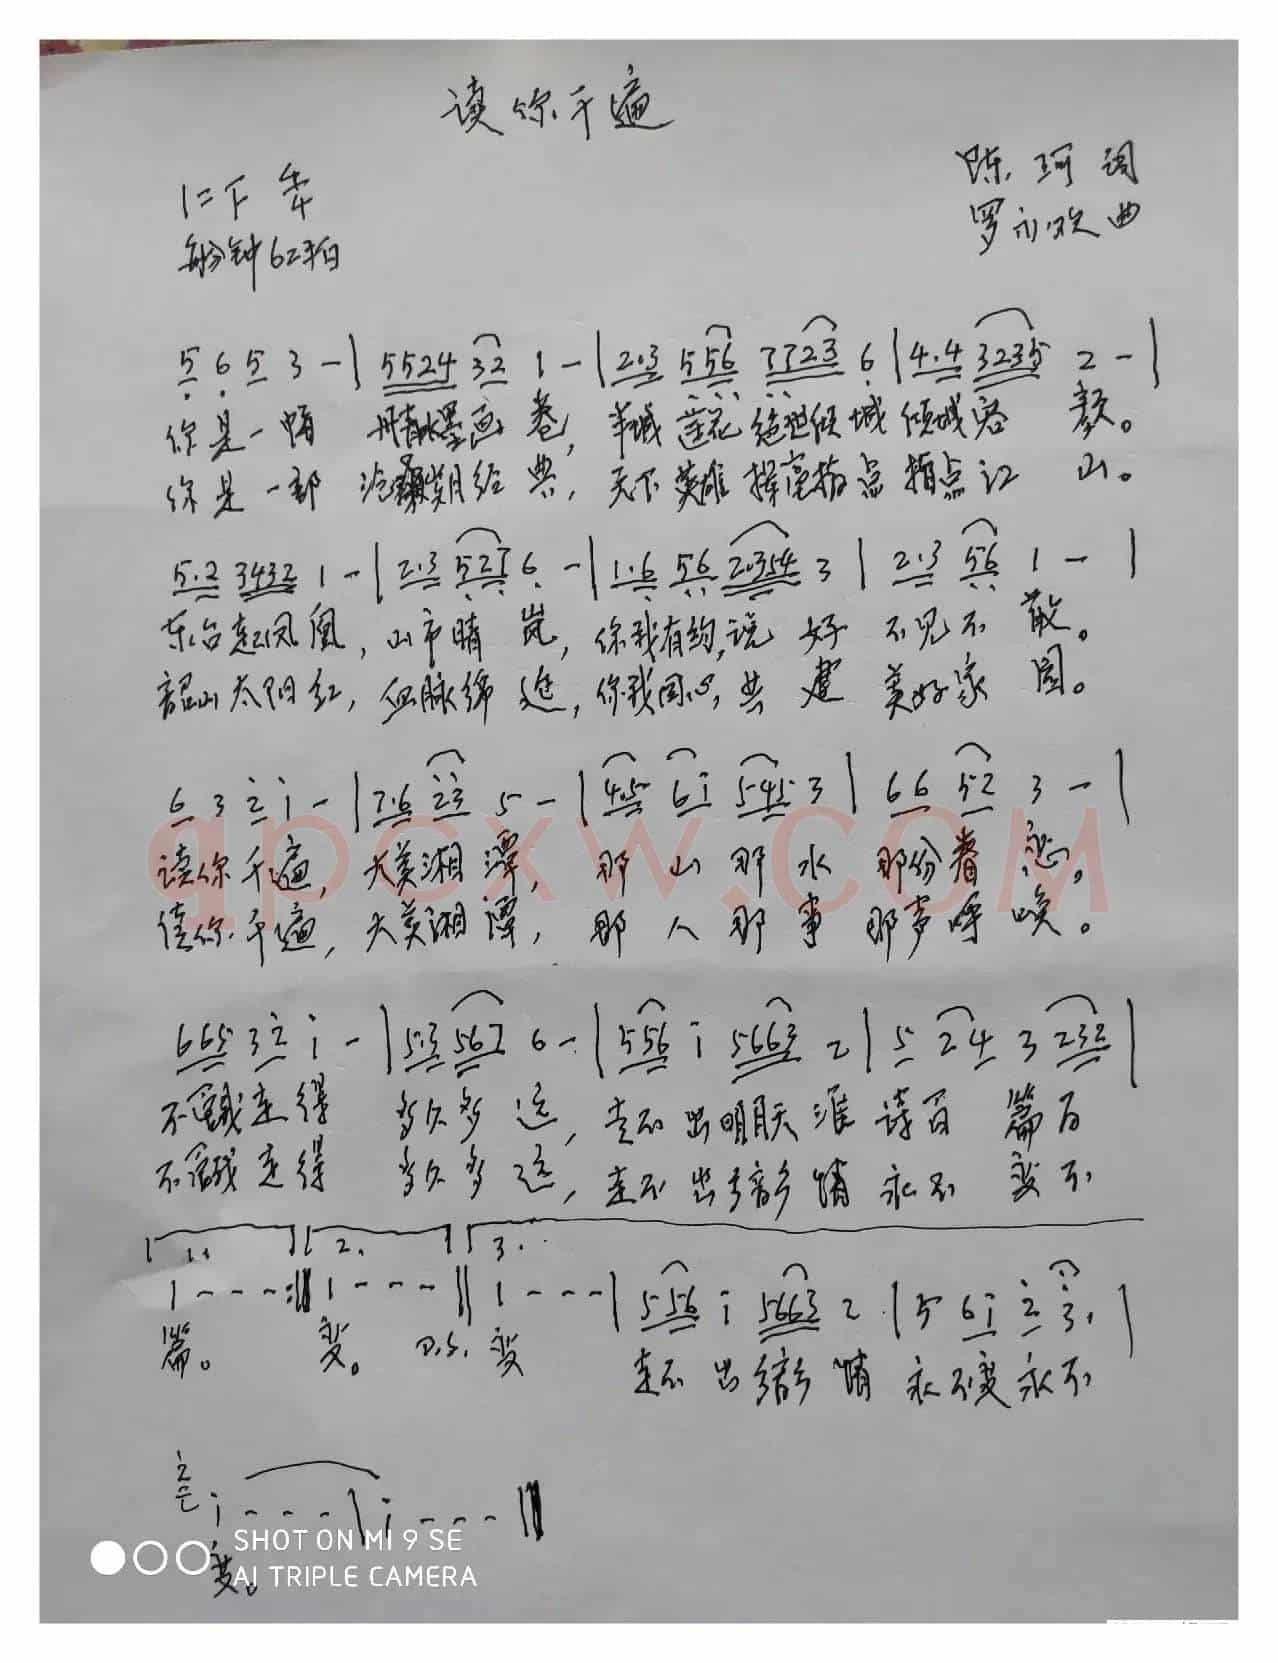 读你千遍
1=F 4/4
陈珂词
每分钟62拍
罗永欢曲
5 6 5 3 - | 5524 32 1 - | 2·3 556 7723 6 | 4·4 3235 2 - |
你是一幅 丹青水墨画卷, 莲城莲花绝世倾城倾城容 颜。
你是一部 沧桑岁月经典, 天下英雄挥毫指点指点江 山。
5·2 3432 1 - | 2·3 527 6 - | 1·6 56 2·354 3 | 2·3 56 1 - |
东台起凤凰, 山市晴岚, 你我有约,说 好 不见不 散。
韶山太阳红, 血脉绵延, 你我同心,共 建 美好家 园。
6 3 2 1 - | 7·6 23 5 - | 4·5 61 545 3 | 66 52 3 - |
读你千遍, 大美湘潭, 那山那水 那份眷恋。
读你千遍, 大美湘潭, 那人那事 那声呼唤。
665 32 1 - | 5·3 567 6 - | 556 1 5663 2 | 5 24 3 232 |
不管我走得 多久多远, 走不出明月天涯 诗百 篇百
不管我走得 多久多远, 走不出乡音乡情 永不 变不
1. 2. 3.
1 - - - :‖ 1 - - - ‖ 1 - - - | 556 1 5663 2 | 5 61 2 3· |
篇。 变。 D.S. 变 走不出乡音乡情 永不变永不
2 1 - - - | 1 - - - ‖
变。
SHOT ON MI 9 SE
AI TRIPLE CAMERA
qpcxw.com